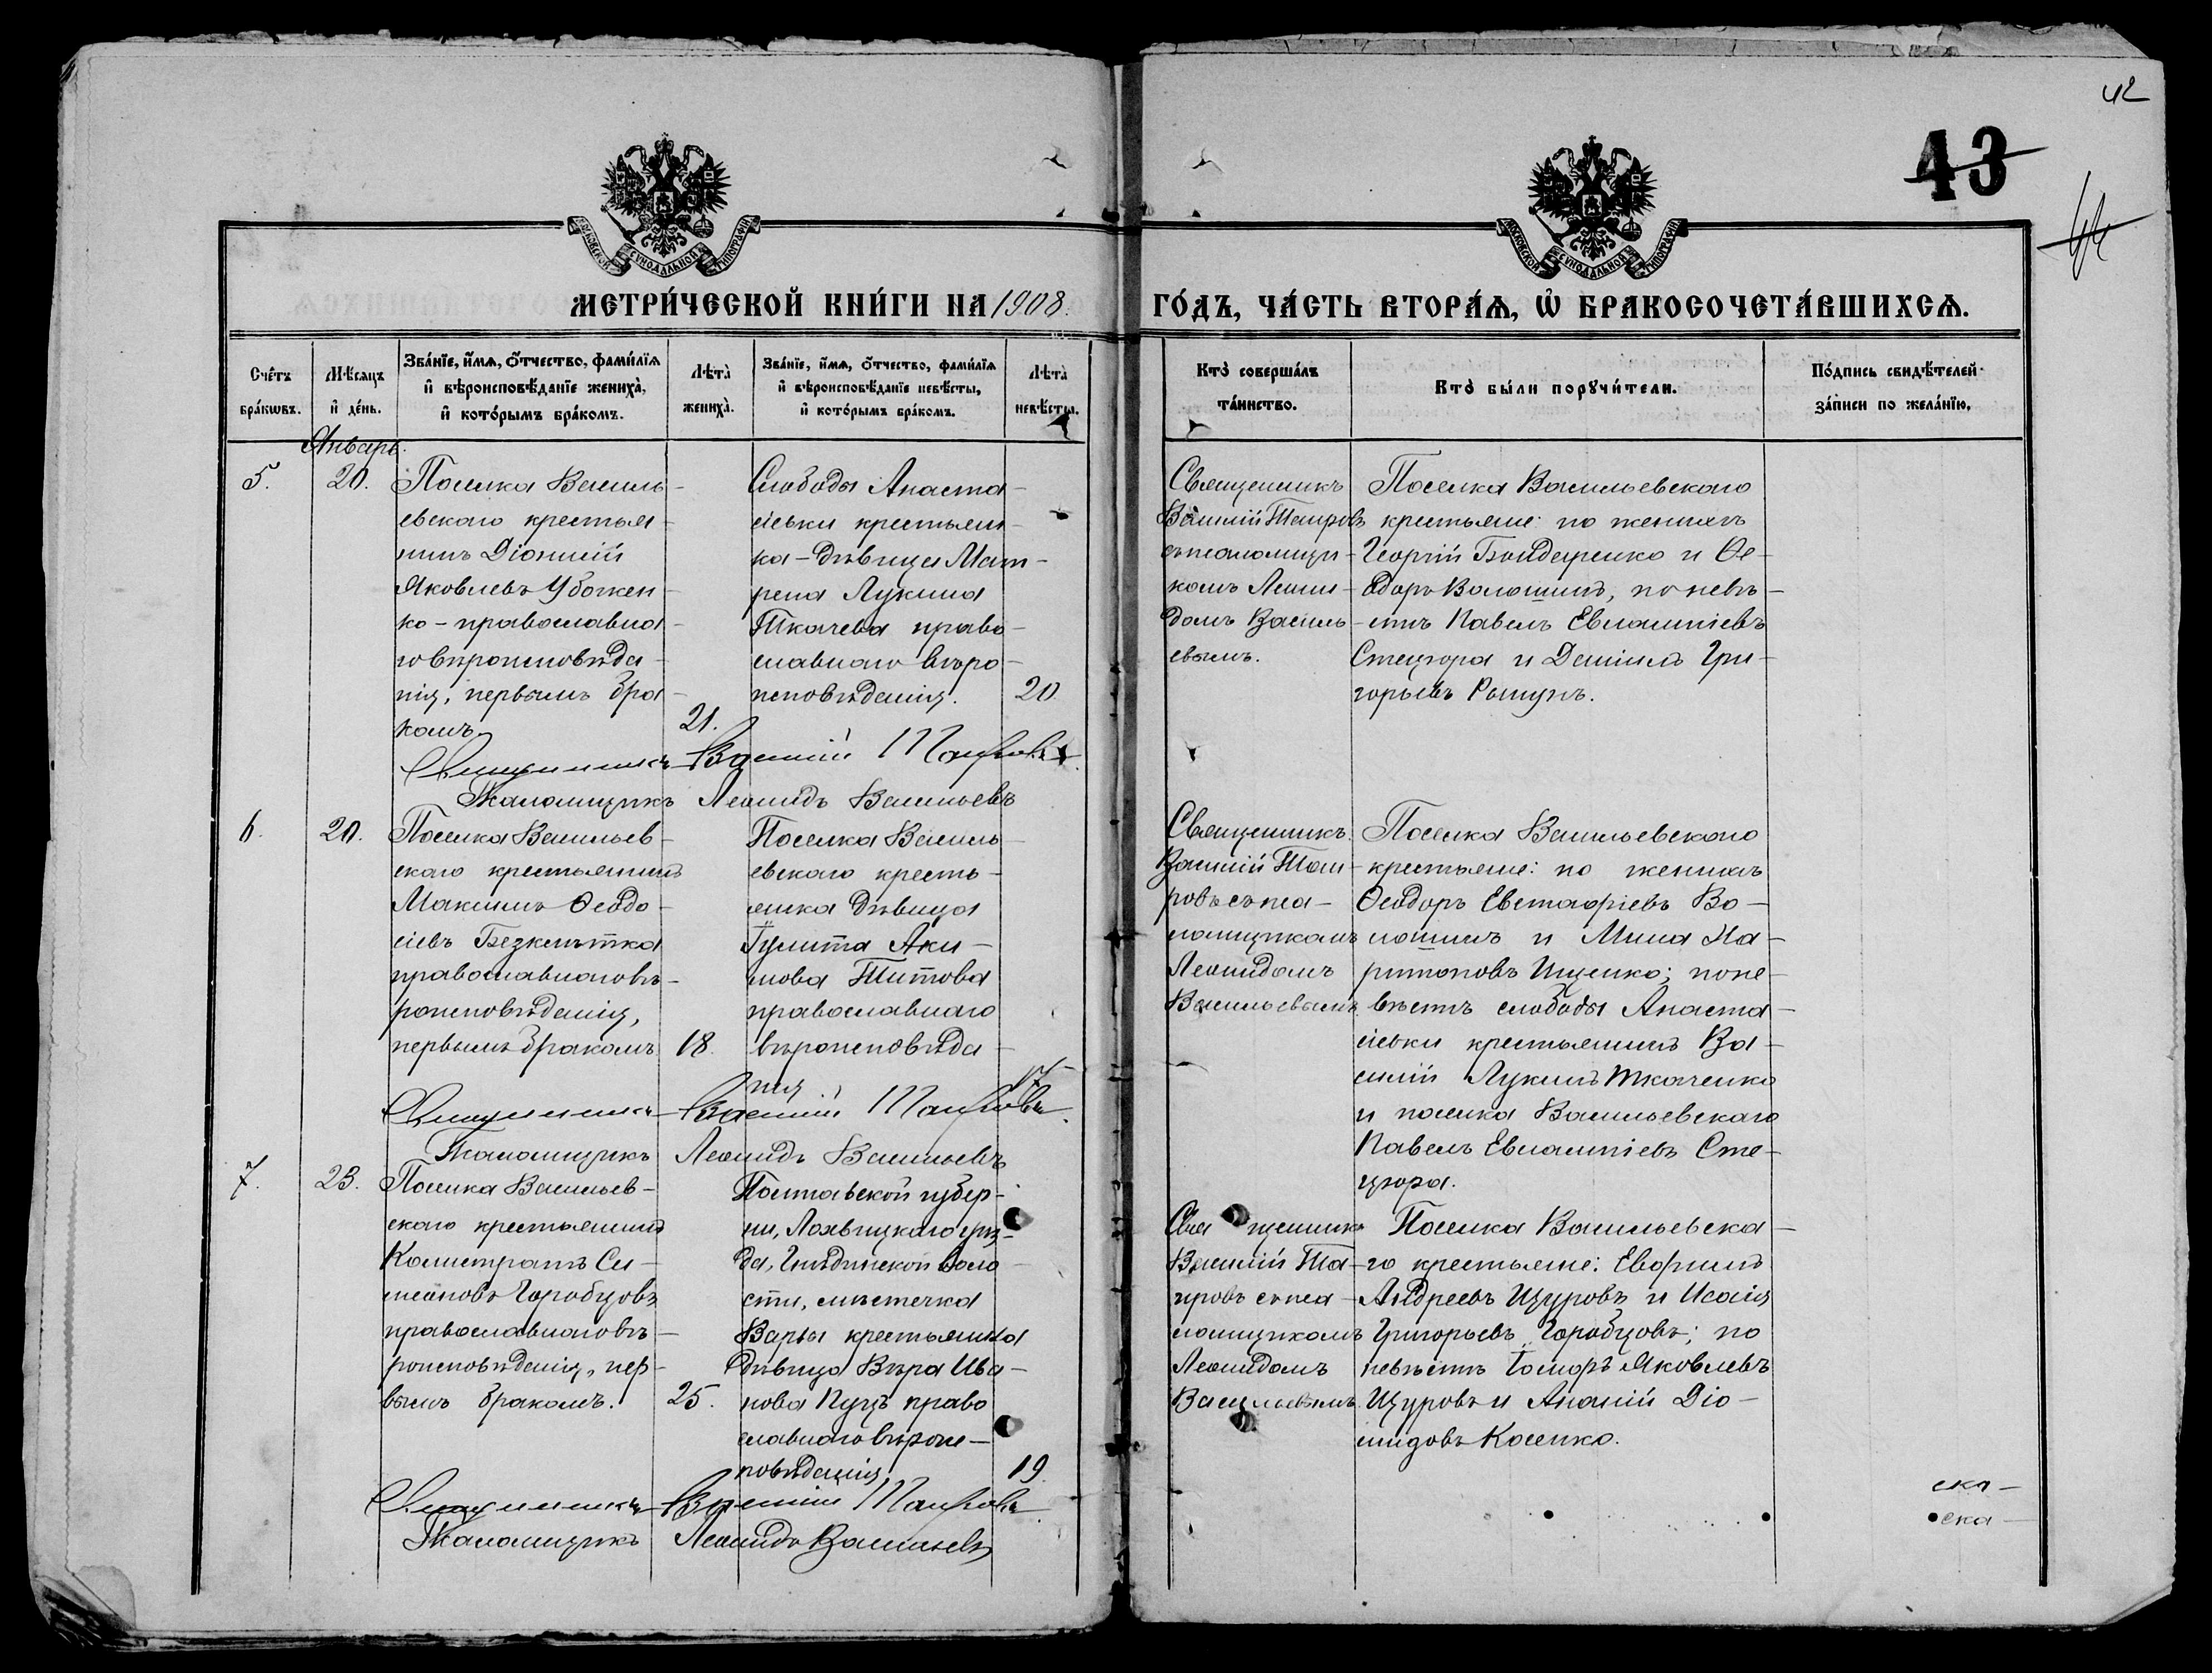 42
43
44
МОСКОВСКОЙ СѴНОДАЛЬНОЙ ТИПОГРАФІИ
МОСКОВСКОЙ СѴНОДАЛЬНОЙ ТИПОГРАФІИ
МЕТРИ́ЧЕСКОЙ КНИ́ГИ НА 1908.
ГО́ДЪ, ЧА́СТЬ ВТОРА́Ѧ, Ѽ БРАКОСОЧЕТА́ВШИХСѦ.
Сче́тъ
бра́кѡвъ.
Мѣ́сѧцъ
и҆ де́нь.
Зва́нїе, и҆́мѧ, о҆́тчество, фами́лїѧ
и҆ вѣроисповѣ́данїе жениха̀,
и҆ кото́рымъ бра́комъ.
Лѣта̀
жениха̀.
Зва́нїе, и҆́мѧ, о҆́тчество, фами́лїѧ
и҆ вѣроисповѣ́данїе невѣ́сты,
и҆ кото́рымъ бра́комъ.
Лѣта̀
невѣ́сты.
Кто̀ соверша́лъ
та́инство.
Кто̀ бы́ли порꙋчи́тели.
По́дпись свидѣ́телей
за́писи по жела́нїю.
Январь.
5.
20.
Поселка Василь-
евскаго крестья-
нинъ Діонисій
Яковлевъ Убожен-
ко - православна-
го вѣроисповѣда-
нія, первымъ бра-
комъ.
21.
Слободы Анаста-
сіевки крестьян-
ка - дѣвица Мат-
рена Лукина
Ткачева право-
славнаго вѣро-
исповѣданія.
20
Священникъ
Василій Таировъ
съ псаломщи-
комъ Леони-
домъ Василь-
евымъ.
Поселка Васильевскаго
крестьяне: по женихѣ
Георгій Бондаренко и Ѳе-
одоръ Волошинъ, по невѣ-
стѣ Павелъ Евлампіевъ
Стецюра и Даніилъ Гри-
горьевъ Рашунъ.
Священникъ Василій Таировъ.
Псаломщикъ Леонидъ Васильевъ
6.
20.
Поселка Васильев-
скаго крестьянинъ
Максимъ Ѳеодо-
сіевъ Безклѣтка
православнаго вѣ-
роисповѣданія,
первымъ бракомъ.
18.
Поселка Василь-
евскаго кресть-
янка дѣвица
Іулита Аки-
мова Титова
православнаго
вѣроисповѣда-
нія
17
Священникъ
Василій Таи-
ровъ съ пса-
ломщикомъ
Леонидомъ
Васильевымъ
Поселка Васильевскаго
крестьяне: по женихѣ
Ѳеодоръ Евстафіевъ Во-
лошинъ и Мина Ха-
ритоновъ Ищенко; по не-
вѣстѣ слободы Анаста-
сіевки крестьянинъ Ва-
силій Лукинъ Ткаченко
и поселка Васильевскаго
Павелъ Евлампіевъ Сте-
цюра.
Священникъ Василій Таировъ.
Псаломщикъ Леонидъ Васильевъ
7.
23.
Поселка Васильев-
скаго крестьянинъ
Калистратъ Си-
меоновъ Горобцовъ
православнаго вѣ-
роисповѣданія, пер-
вымъ бракомъ.
25.
Полтавской губер-
ни, Лохвицкаго уѣз-
да, Гнѣдинской воло-
сти, мѣстечка
Варвы крестьянка
дѣвица Вѣра Ива-
нова Пуцъ право
славнаго вѣроис-
повѣданія
19.
Священникъ
Василій Та-
ировъ съ пса-
ломщикомъ
Леонидомъ
Васильевымъ.
Поселка Васильевска-
го крестьяне: Евфимъ
Андреевъ Щуровъ и Исаія
Григорьевъ Горобцовъ; по
невѣстѣ Яковлевъ
Щуровъ и Ананій Діо-
мидовъ Косенко.
Священникъ Василій Таировъ.
Псаломщикъ Леонидъ Васильевъ
ска-
ска-